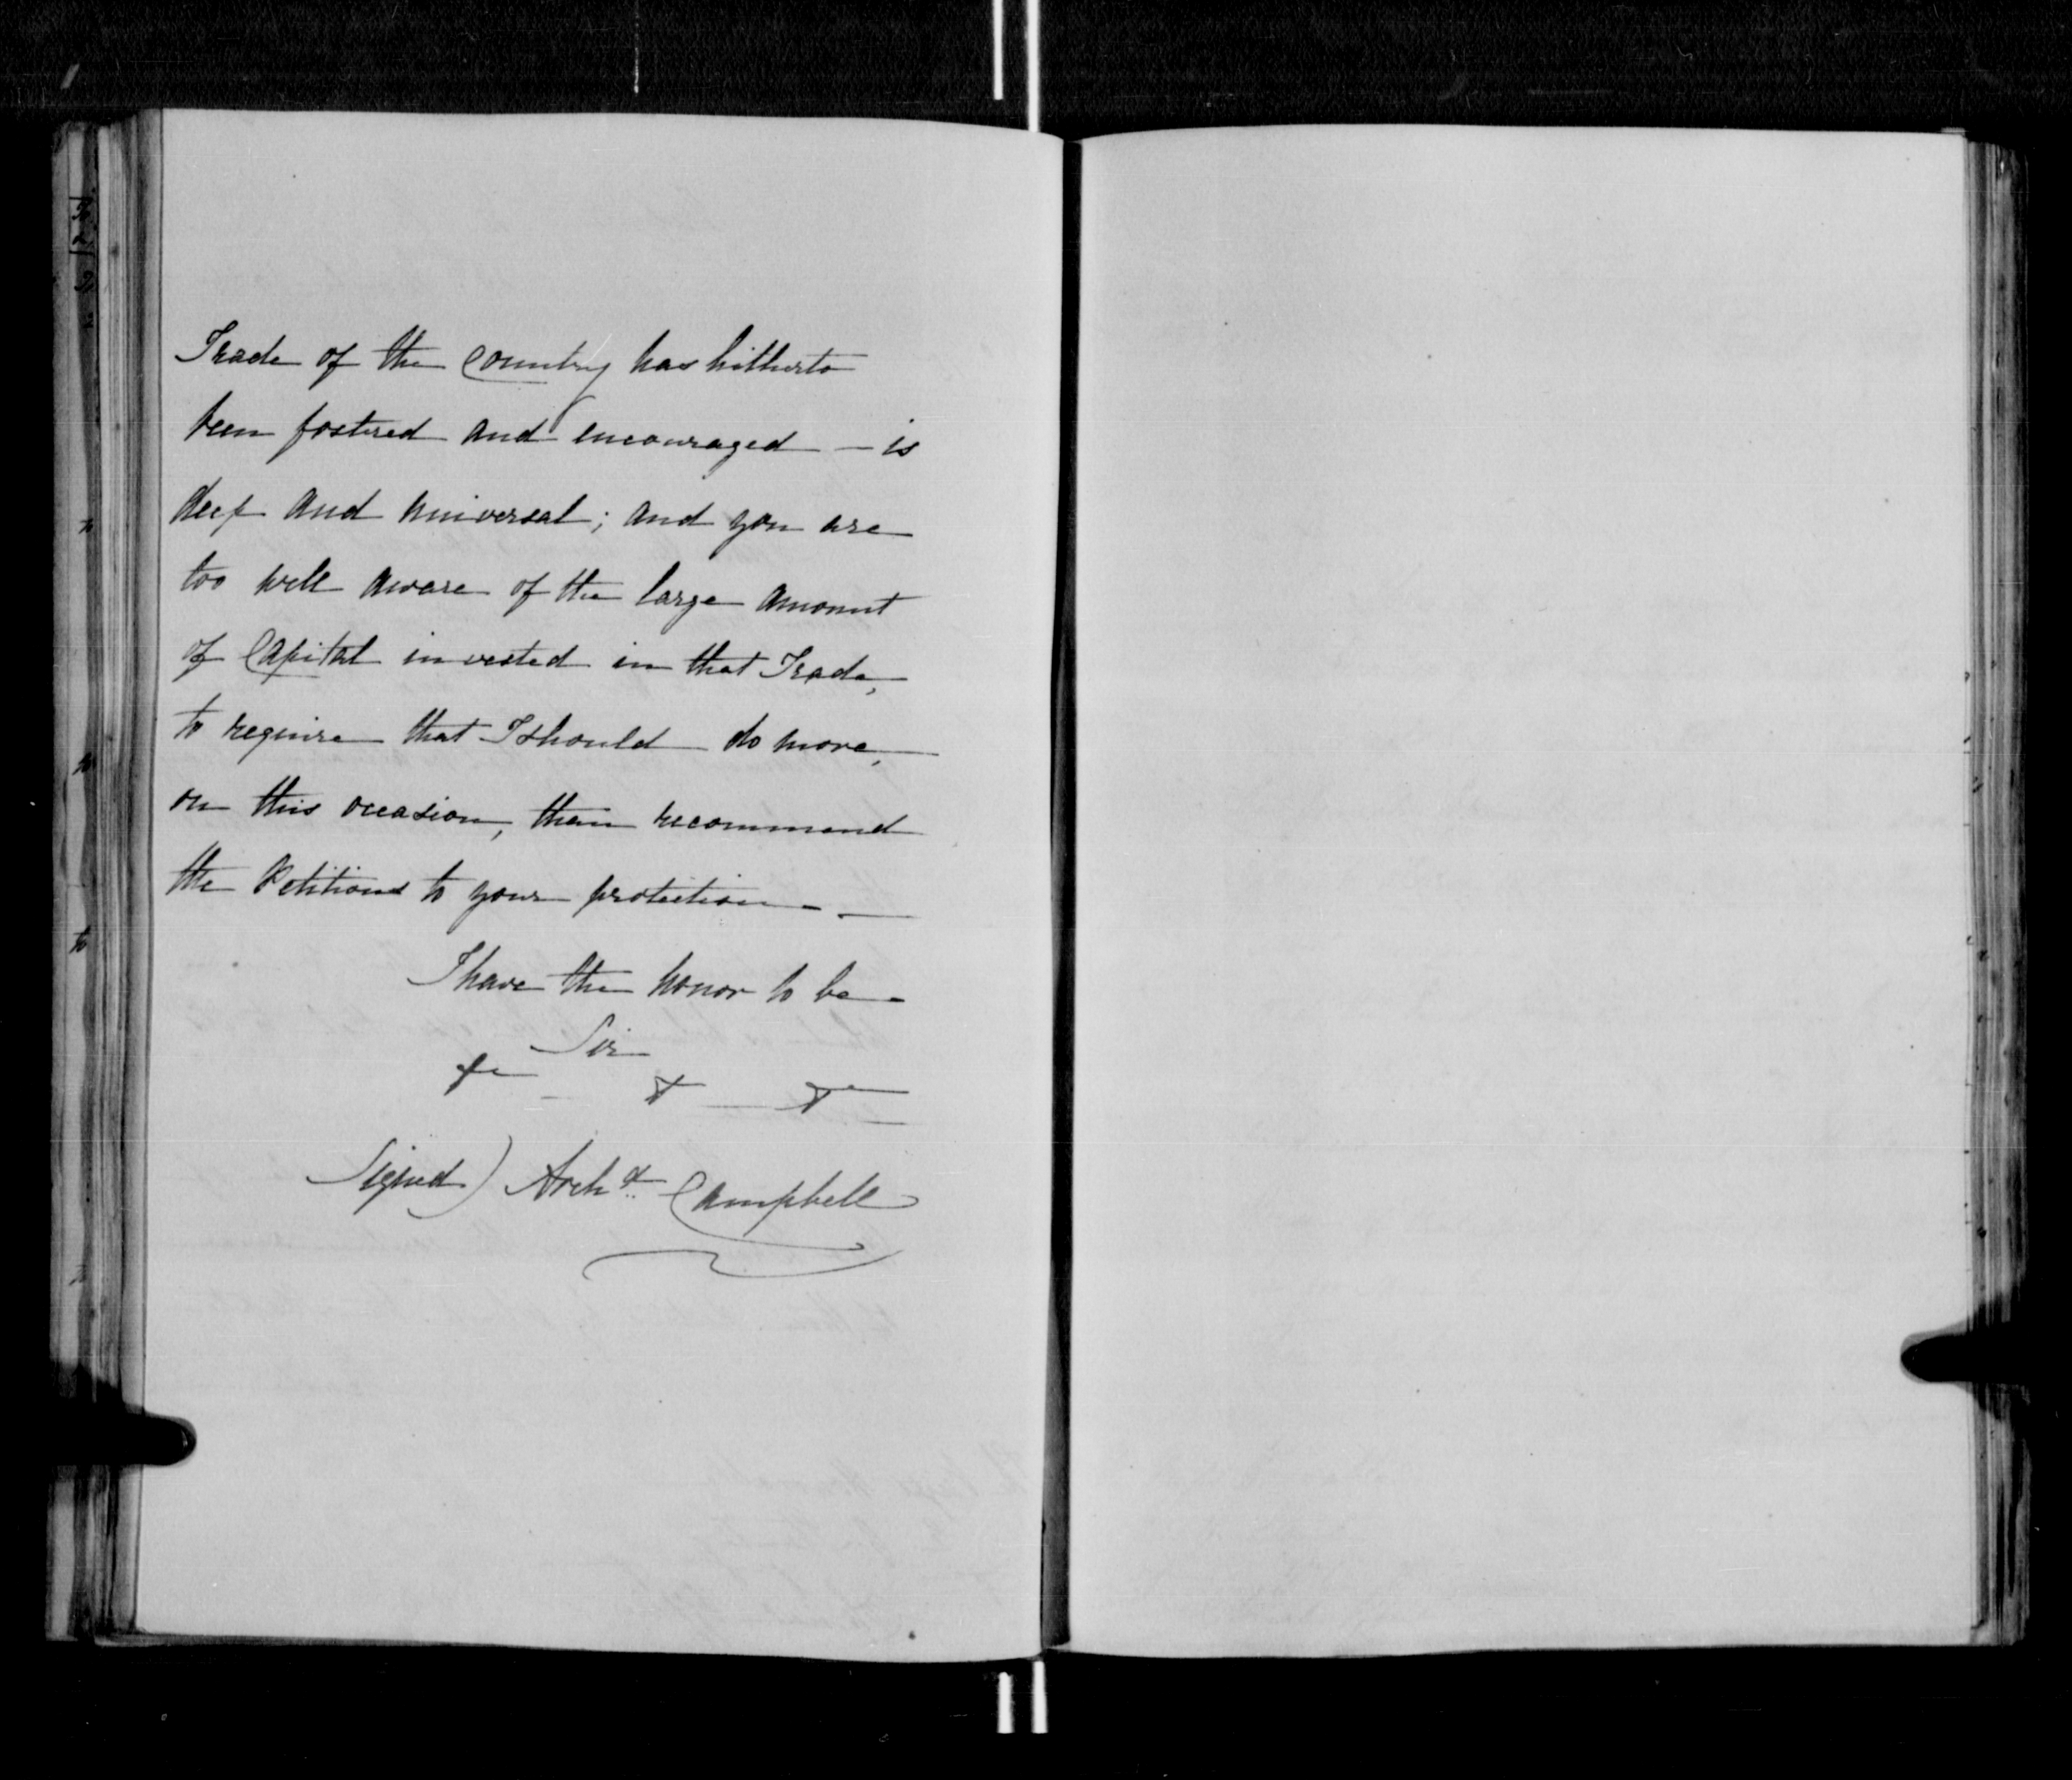 Trade of the Country has hitherto
been fostered and encouraged — is
deep and universal; and you are
too well aware of the large amount
of Capital invested in that Trade,
to require that I should do more,
on this occasion, than recommend
the Petitions to your protection. —
I have the honor to be
Sir
&c & &
Signed) Archd Campbell